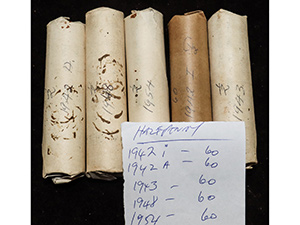 1942 D.
1948
1954
60
1942 I
1943
HALFPENNY
1942 i - 60
1942 A - 60
1943 - 60
1948 - 60
1954 - 60